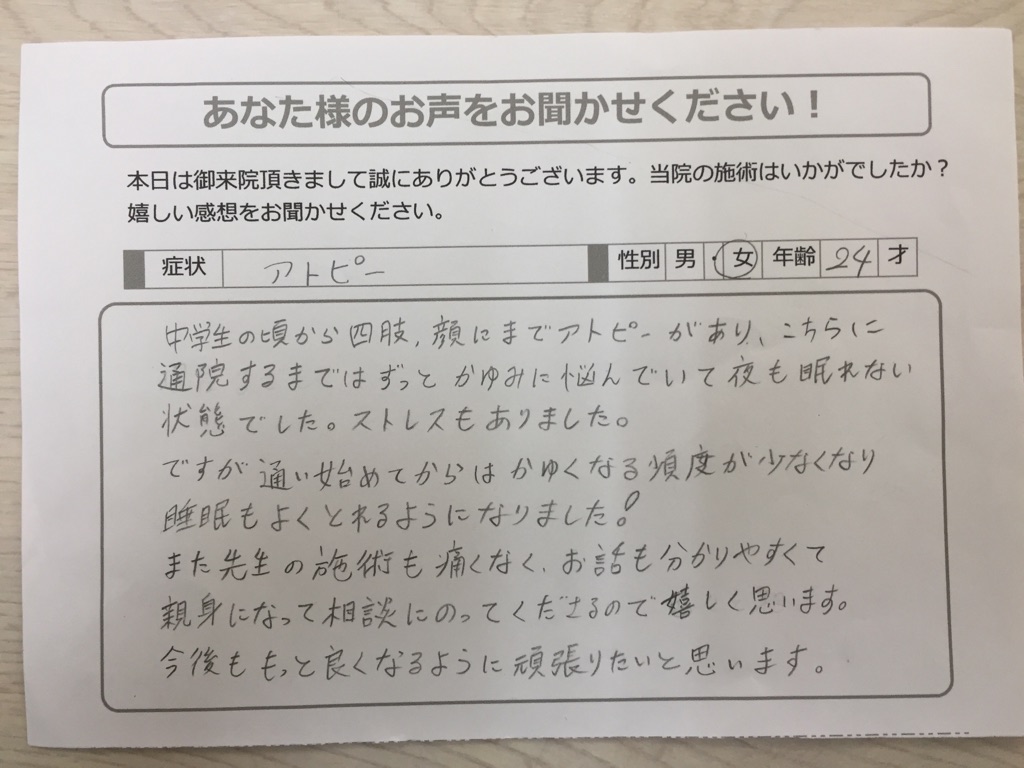 あなた様のお声をお聞かせください！
本日は御来院頂きまして誠にありがとうございます。当院の施術はいかがでしたか？
嬉しい感想をお聞かせください。
症状 アトピー 性別 男 ・ 女 年齢 24 才
中学生の頃から四肢，顔にまでアトピーがあり、こちらに
通院するまではずっとかゆみに悩んでいて夜も眠れない
状態でした。ストレスもありました。
ですが通い始めてからはかゆくなる頻度が少なくなり
睡眠もよくとれるようになりました!
また先生の施術も痛くなく、お話も分かりやすくて
親身になって相談にのってくださるので嬉しく思います。
今後ももっと良くなるように頑張りたいと思います。